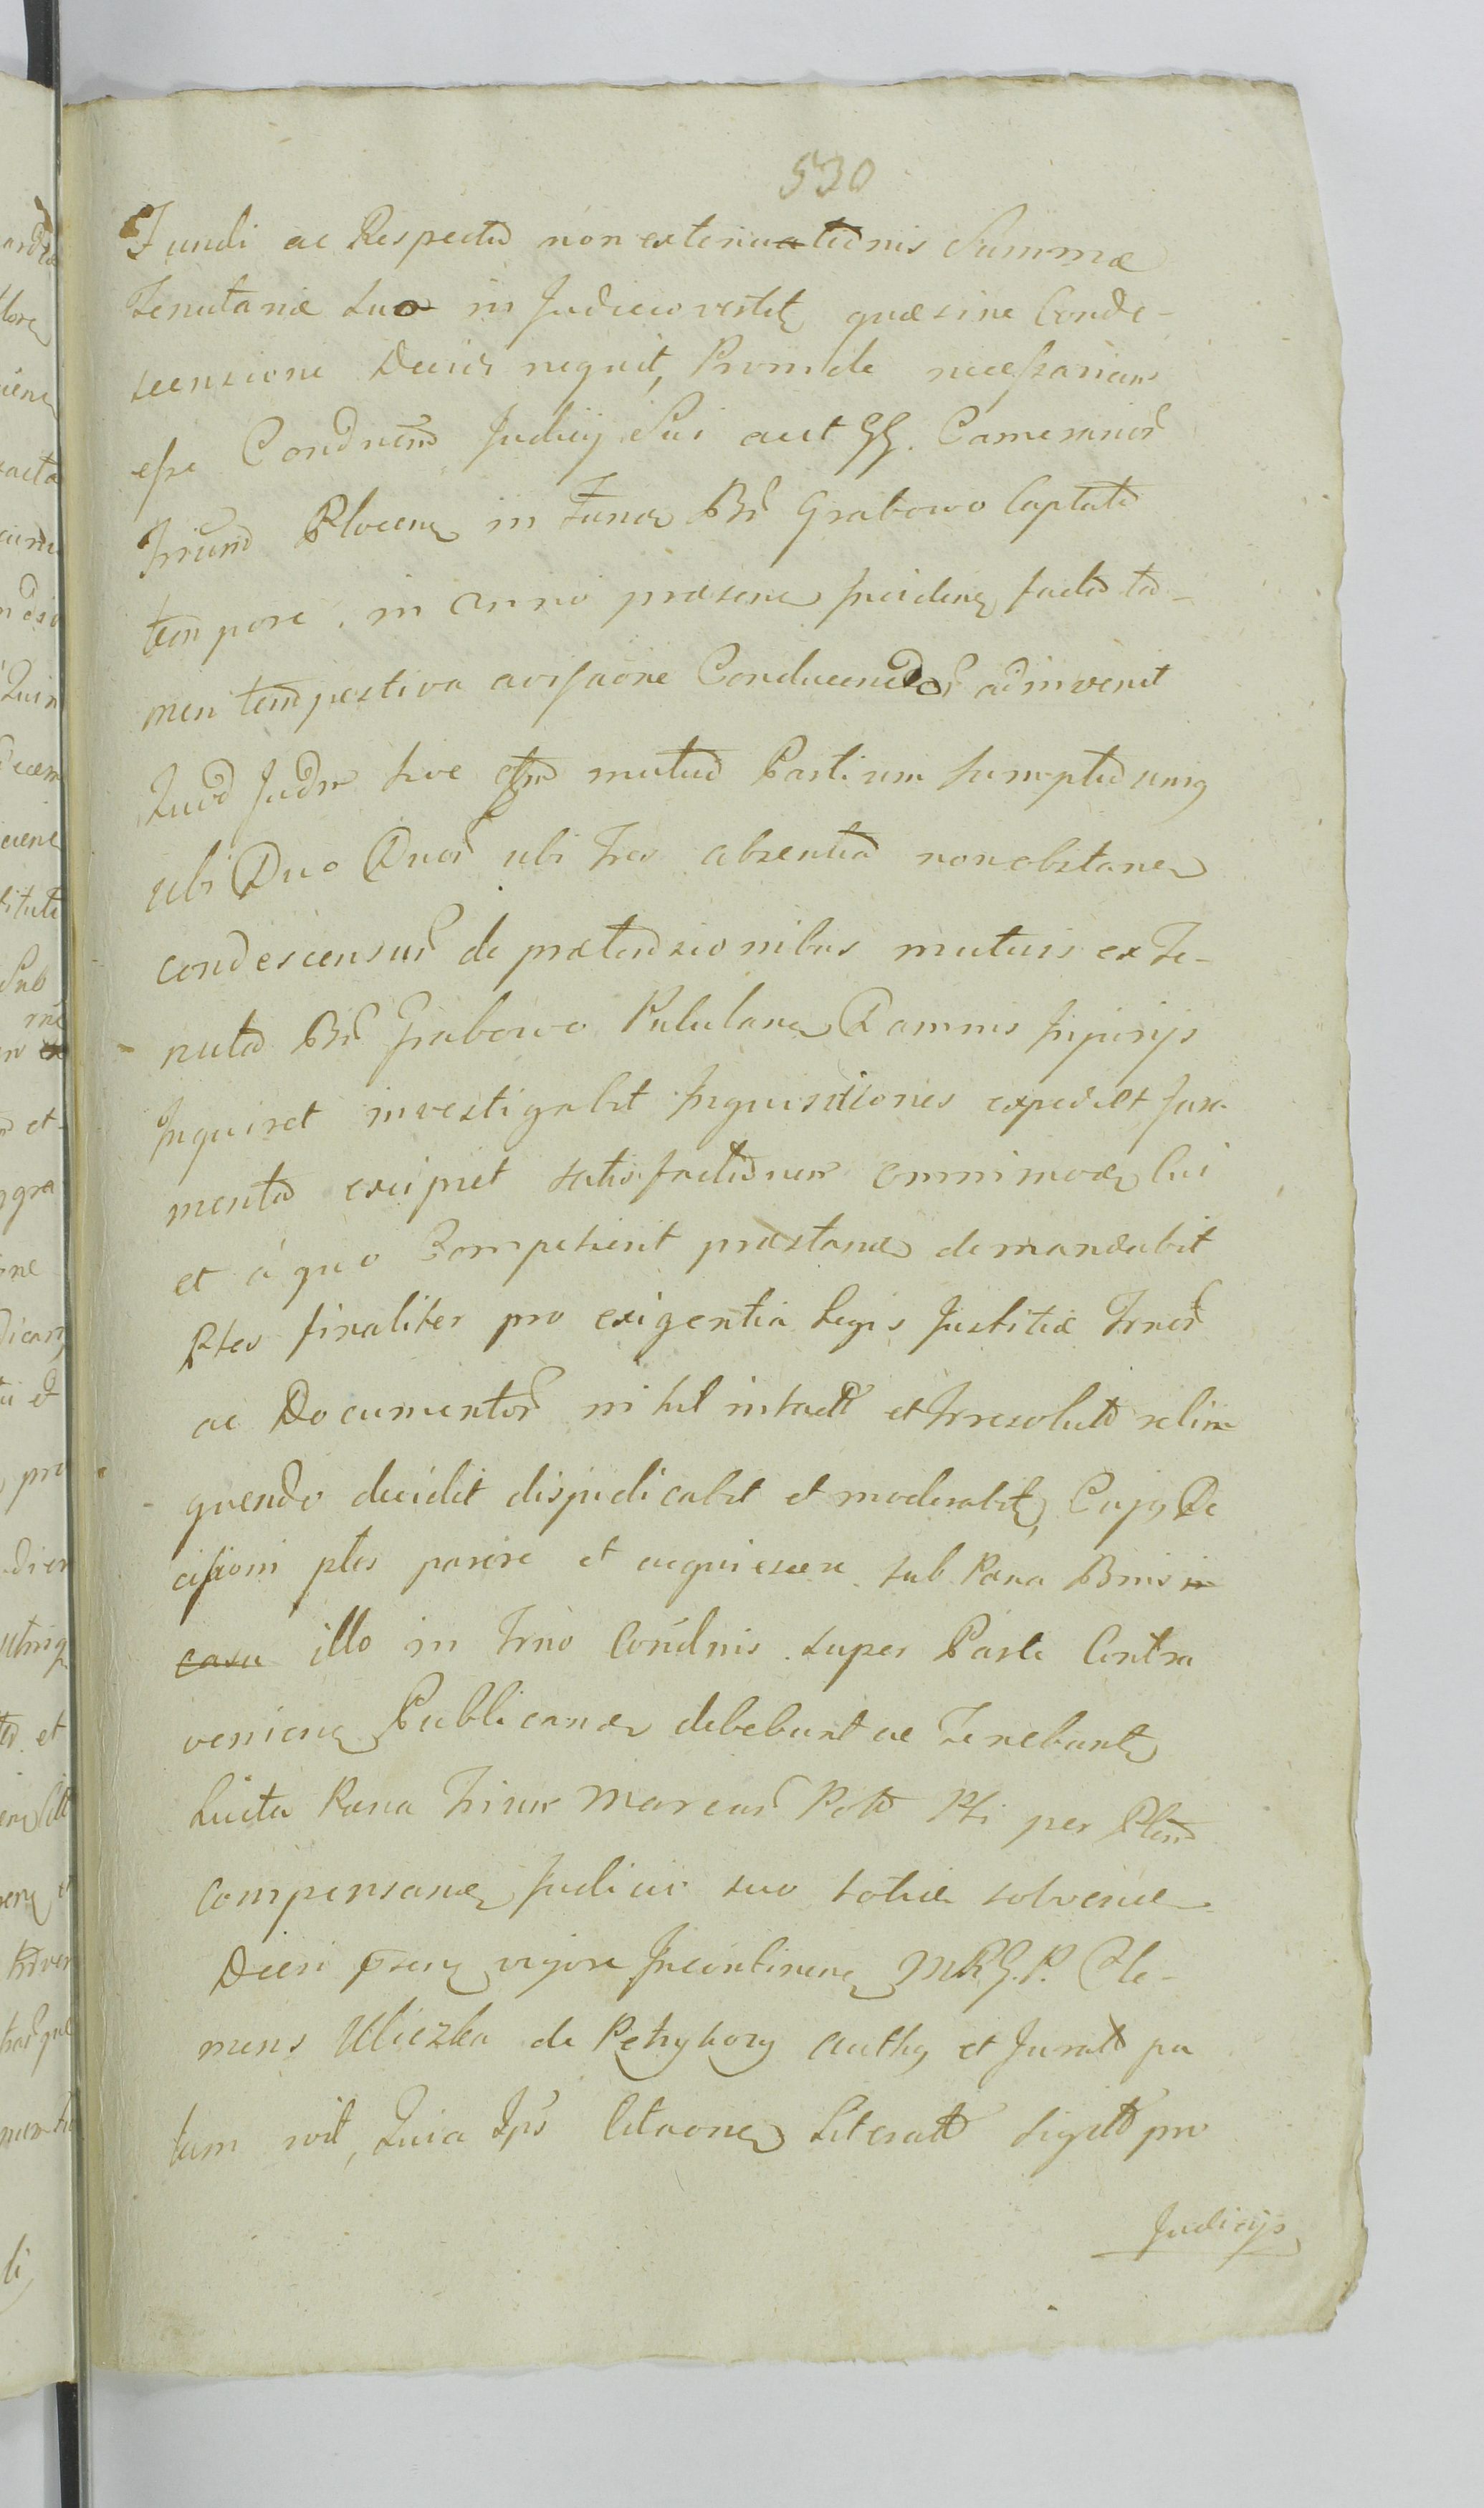 530
Fundi ac Respectu non extenuationis Summæ
Tenutariæ suo in Judicio vertit quæ sine Conde-
scensione Decidi nequit, Proinde necessarium
esse Condnem Judicij Sui aut GG. Camerarior
Trium Plocen in Fundo Br Grabowo Captato
tempore, in Anno præsen inciden facta ta-
men tempestiva avisaone Conducendor adinvenit
Quod Judm sive mutuo Partium sumptu
ubi Duo Duor ubi Tres absentia non obstane
condescensur de prætensionibus mutuis ex Te-
nuta Br Grabowo Pululan Damnis Injurijs
Inquiret investigabit Inquisitiones expediet Jura-
menta excipiet satisfactionem omnimod cui
et à quo Competierit præstand demandabit
Ptes finaliter pro exigentia Legis Justitiæ Trnor
ac Documentor nihil intactt et Irresolutt relin
quendo decidet disjudicabit et moderabit, Cujus De
cisioni ptes parere et acquiescere sub Pæna Bnis in
casu illo in Trno Condnis super Parte Contra
venien Publicand debebunt ac Tenebunt
Lucta Pæna Trium Marcar Pott Pti per Pltem
compensand Judicio suo toties solvend
Decri præsen vigore Incontinen M R G. P. Cle-
mens Uliczka de Petrykozy Auth et Juratt pa
lam roit, Quia Ips Citaones Literatt Sigtt pro
Judicijs